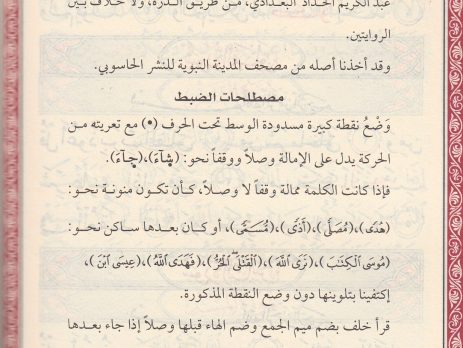 عبد الكريم الحداد البغدادي، من طريق الدرة، ولا خلاف بين
الروايتين.
وقد أخذنا أصله من مصحف المدينة النبوية للنشر الحاسوبي.
مصطلحات الضبط
وَضْعُ نقطة كبيرة مسدودة الوسط تحت الحرف (•) مع تعريته من
الحركة يدل على الإمالة وصلاً ووقفاً نحو: (شآءَ)،(جآءَ).
فإذا كانت الكلمة ممالة وقفاً لا وصلاً، كأن تكون منونة نحو:
(هُدَى)،(مُصَلَّى)،(أَذَى)،(مُّسَمَّى)، أو كان بعدها ساكن نحو:
(مُوسَى ٱلْكِتَٰبَ)،(نَرَى ٱللَّهَ)،(ٱلْقَتْلَى ٱلْحُرُّ)،(فَهَدَى ٱللَّهُ)،(عِيسَى ٱبْنَ)،
إكتفينا بتلوينها دون وضع النقطة المذكورة.
قرأ خلف بضم ميم الجمع وضم الهاء قبلها وصلاً إذا جاء بعدها